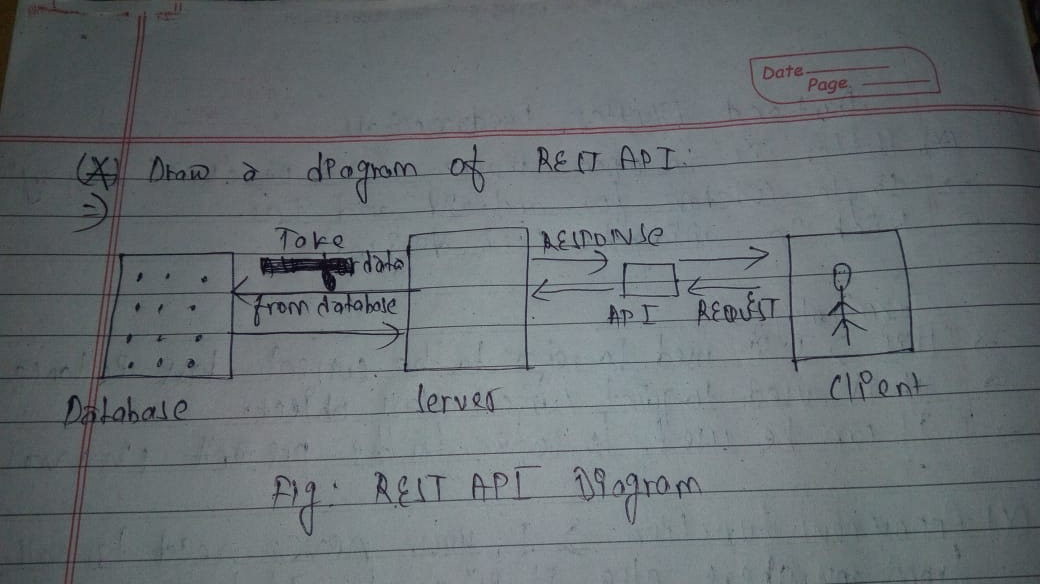 Date
Page
(X) Draw a diagram of REST API.
=>
Take
data
from database
RESPONSE
API
REQUEST
Database
Server
Client
Fig: REST API Diagram